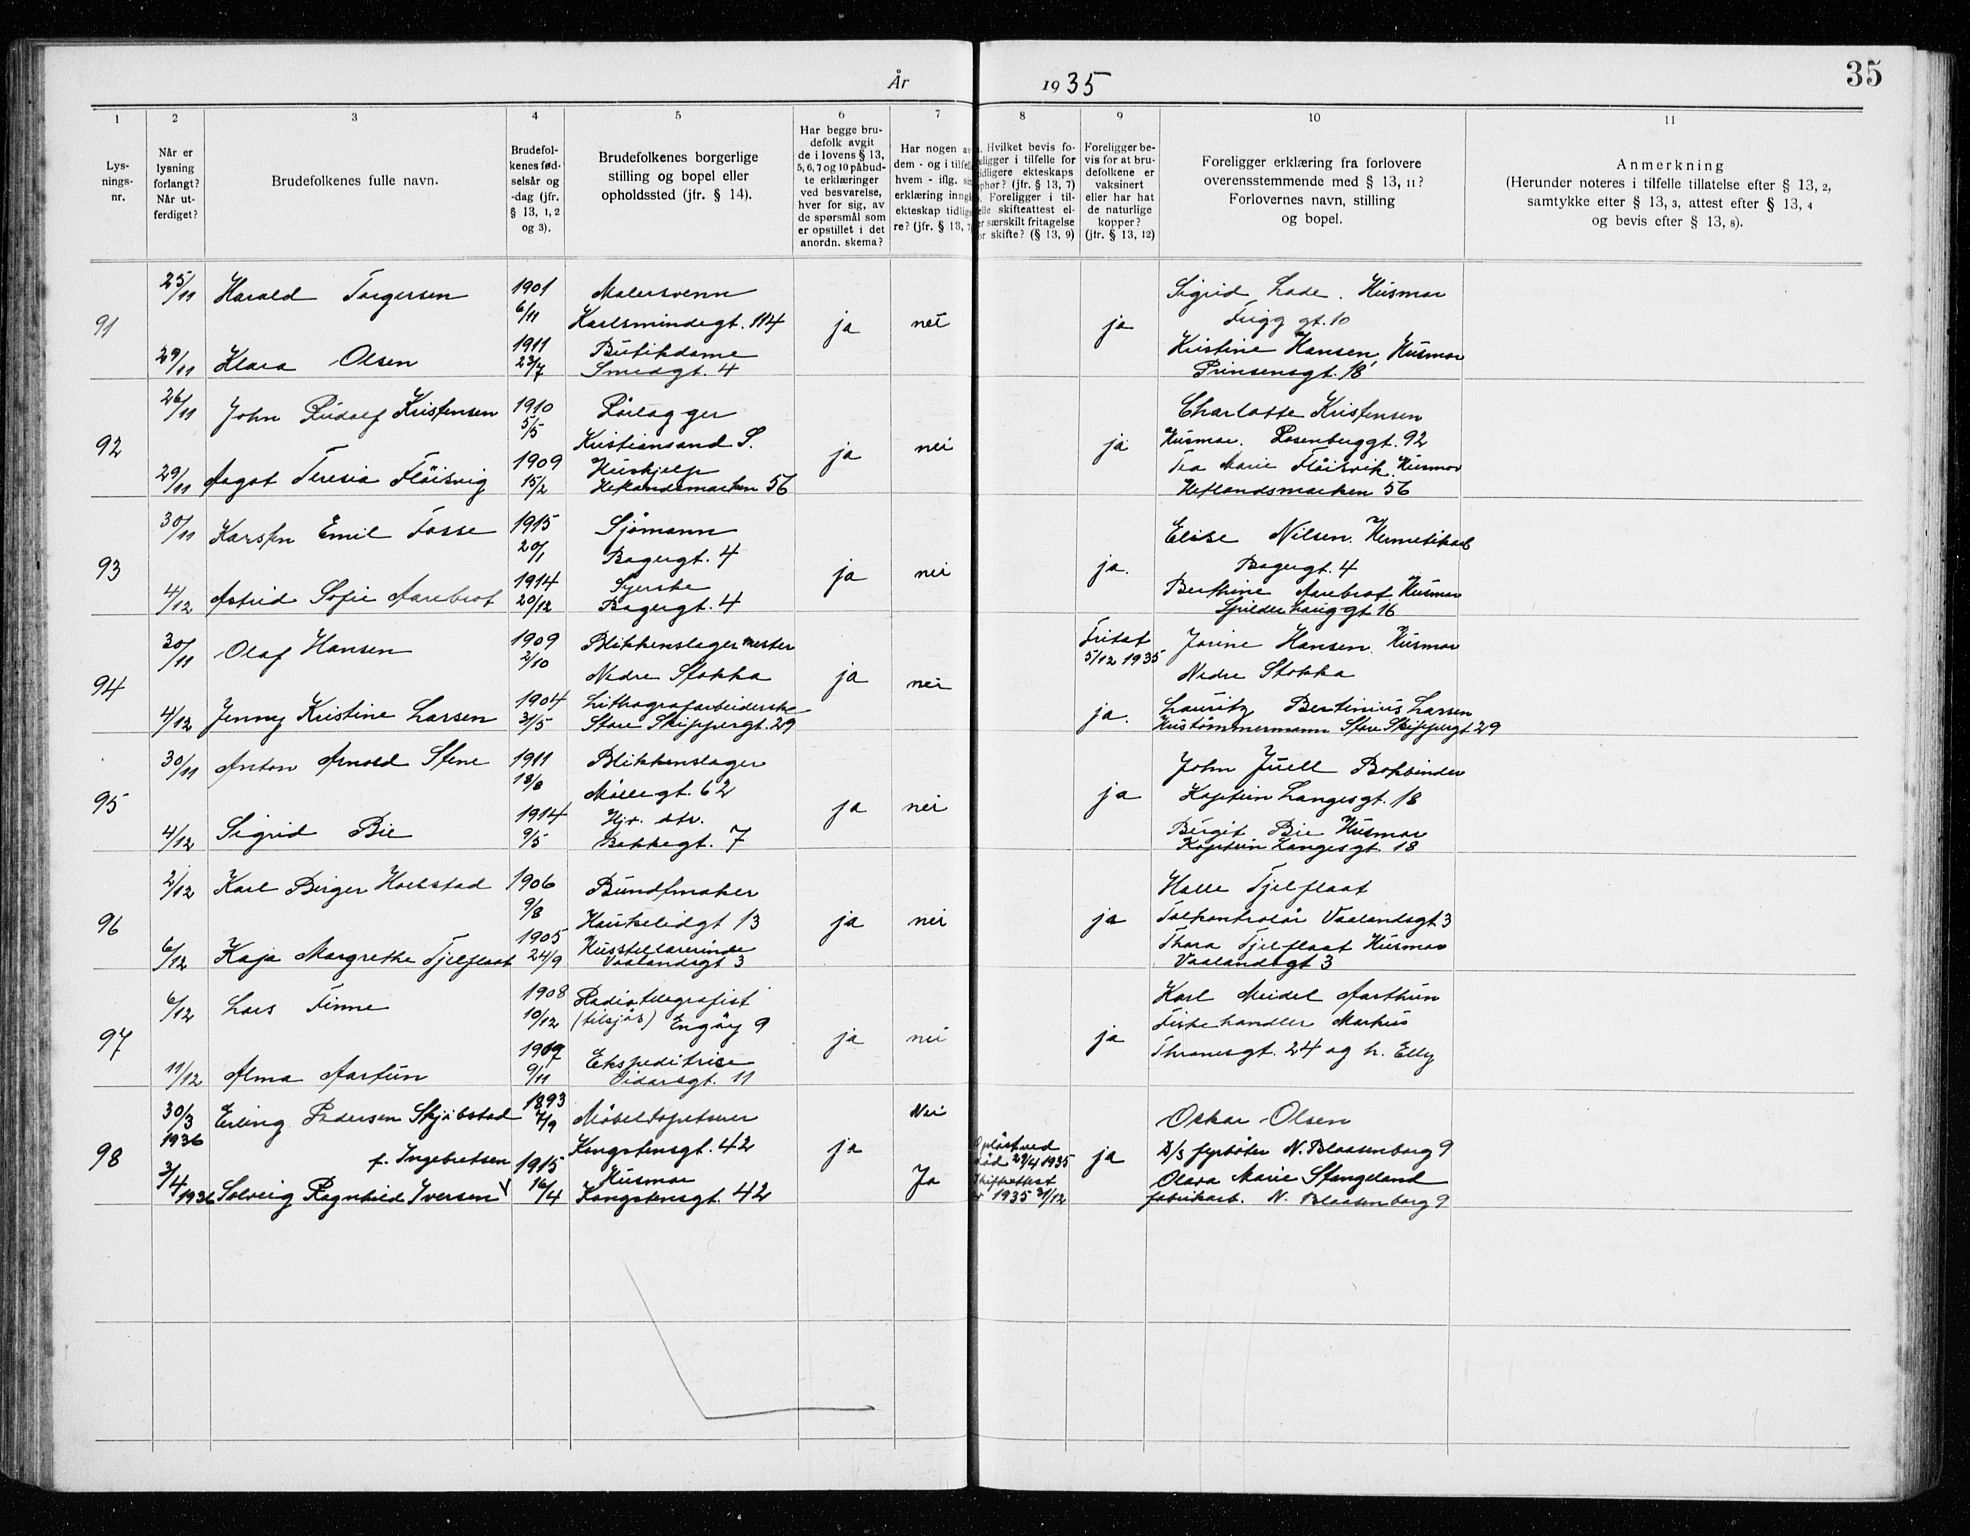 År 1935
35
1 2 3 4 5 6 7 8 9 10 11
Lys-
nings-
nr.
Når er
lysning
forlangt?
Når ut-
ferdiget?
Brudefolkenes fulle navn.
Brudefol-
kenes fød-
selsår og
-dag (jfr.
§ 13, 1, 2
og 3).
Brudefolkenes borgerlige
stilling og bopel eller
opholdssted (jfr. § 14).
Har begge bru-
defolk avgit
de i lovens § 13,
5, 6, 7 og 10 påbud-
te erklæringer
ved besvarelse,
hver for sig, av
de spørsmål som
er opstillet i det
anordn. skema?
Har nogen av
dem - og i tilfelle
hvem - iflg. sin
erklæring inngå
ekteskap tidlige
re? (jfr. § 13, 7)
Hvilket bevis fo-
religger i tilfelle for
tidligere ekteskaps
ophør? (jfr. § 13, 7)
Foreligger i til-
felle skifteattest el-
er særskilt fritagelse
for skifte? (§ 13, 9)
Foreligger be-
vis for at bru-
defolkene er
vaksinert
eller har hat
de naturlige
kopper?
(jfr. § 13, 12)
Foreligger erklæring fra forlovere
overensstemmende med § 13, 11?
Forlovernes navn, stilling
og bopel.
Anmerkning
(Herunder noteres i tilfelle tillatelse efter § 13, 2,
samtykke efter § 13, 3, attest efter § 13, 4
og bevis efter § 13, 8).
91
25/11 Harald Torgersen 1901 6/11 Malersvenn
Karlsmindegt. 114 ja nei ja
Sigrid Lode. Husmor
Frigg gt. 10
29/11 Klara Olsen 1911 23/7 Butikdame
Smedgt. 4
Kristine Hansen, Husmor
Prinsensgt. 18
92
26/11 John Rudolf Kristensen 1910 5/5 Pørlegger
Kristiansand S. ja nei ja
Charlotte Kristensen
Husmor. Rosenberggt. 92
29/11 Aagot Teresia Fløisvig 1909 15/2 Hushjelp
Hetlandsmarken 56
Tea Marie Fløisvik. Husmor
Hetlandsmarken 56
93
30/11 Karsten Emil Fosse 1915 20/1 Sjømann
Bagergt. 4 ja nei ja.
Elise Nilsen. Hermetikarb
Bagergt. 4
4/12 Astrid Sofie Aarebrot 1914 20/12 Syerske
Bagergt. 4
Berthine Aarebrot Husmor
Spilderhauggt 16
94
30/11 Olaf Hansen 1909 2/10 Blikkenslagermester
Nedre Stokka ja nei
Fritat
5/12 1935
Jorine Hansen. Husmor
Nedre Stokka
4/12 Jenny Kristine Larsen 1904 31/5 Lithografarbeiderske
Store Skippergt. 29 ja.
Lauritz Bertinius Larsen
Hustømmermann Store Skippergt 29
95
30/11 Anton Arnold Stene 1911 18/8 Blikkenslager
Møllegt. 62 ja nei ja
John Juell Bokbinder
Kaptein Langesgt. 18
4/12 Sigrid Bie 1914 9/5
Bakkegt. 7
Birgit Bie Husmor
Kaptein Langesgt. 18
96
2/12 Karl Birger Hoelstad 1906 9/8 Buntmaker
Haukelidgt 13 ja nei ja
Halle Tjelflaat
Tolkontrolør Vaalandsgt 3
6/12 Kaja Margrethe Tjelflaat 1905 24/9 Husstellærerinde
Vaalandsgt 3
Thora Tjelflaat Husmor
Vaalandsgt 3
97
6/12 Lars Finne 1908 10/12 Radiotelegrafist
(tilsjøs) Engøy 9 ja nei ja
Karl Meidel Aarthun
Fiskehandler Markus
Thranesgt. 24 og h. Elly
11/12 Alma Aartun 1909 9/11 Ekspeditrise
Vidarsgt. 11
98
30/3 1936 Erling Pedersen Skjibstad 1893 7/9 Møbeltapetserer
Kongstensgt. 42 ja Nei ja
Oskar Olsen
D/s fyrbøter N. Blaasenborg 9
f. Ingebretsen
3/4 1936 Solveig Ragnhild Iversen 1915 16/4 Husmor
Kongstensgt. 42 Ja
Opløst ved
død 29/4 1935
Skifteattest
1935 31/12
Olava Marie Stangeland
fabrikarb. N. Blaasenborg 9